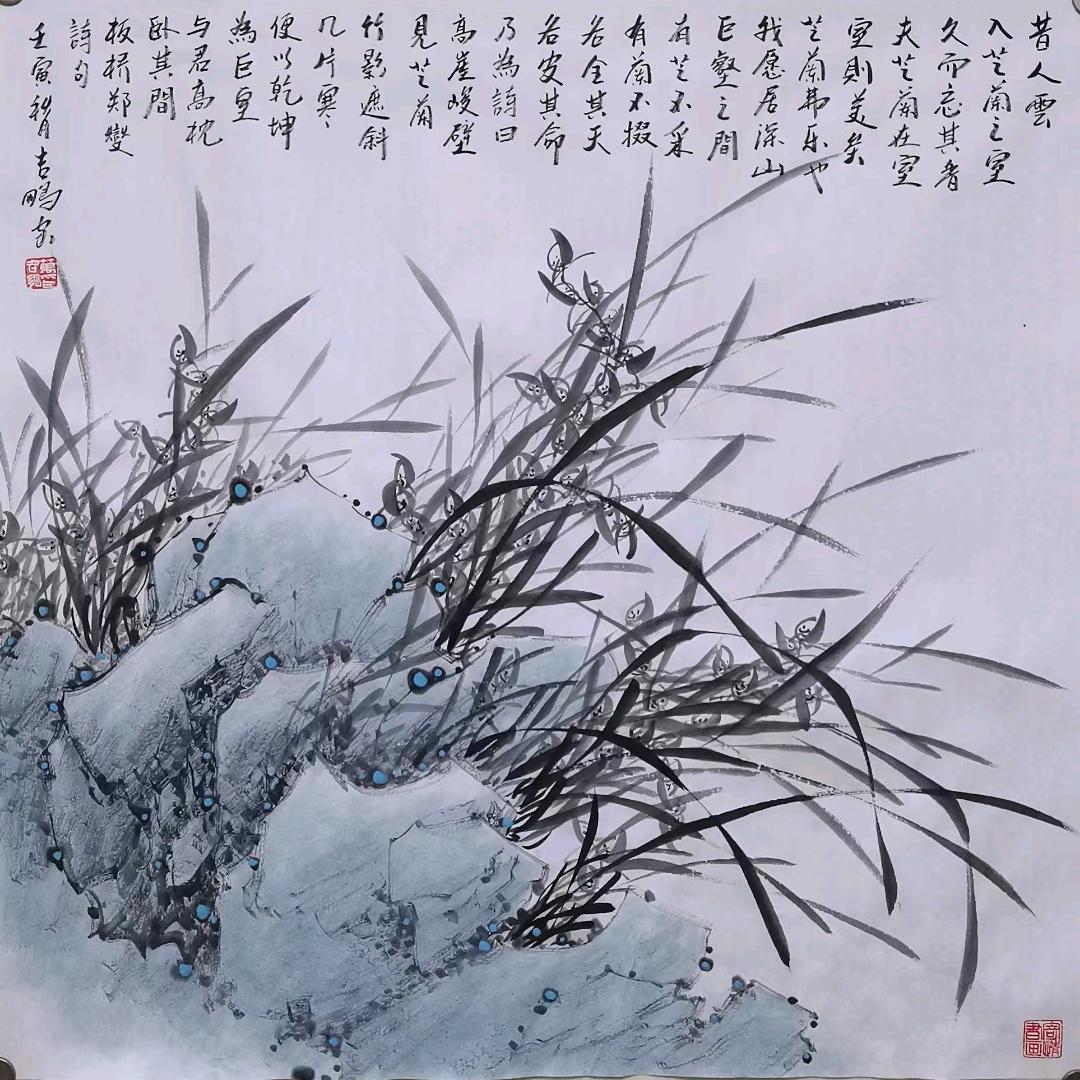 昔人雲
入芝蘭之室
久而忘其香
夫芝蘭在室
室則美矣
芝蘭弗乐也
我愿居深山
巨壑之間
有芝不采
有蘭不掇
各全其天
各安其命
乃為詩曰
高崖峻壁
見芝蘭
竹影遮斜
几片寒
便以乾坤
為巨室
与君高枕
卧其間
板桥郑燮
詩句
壬寅 吉鵬写